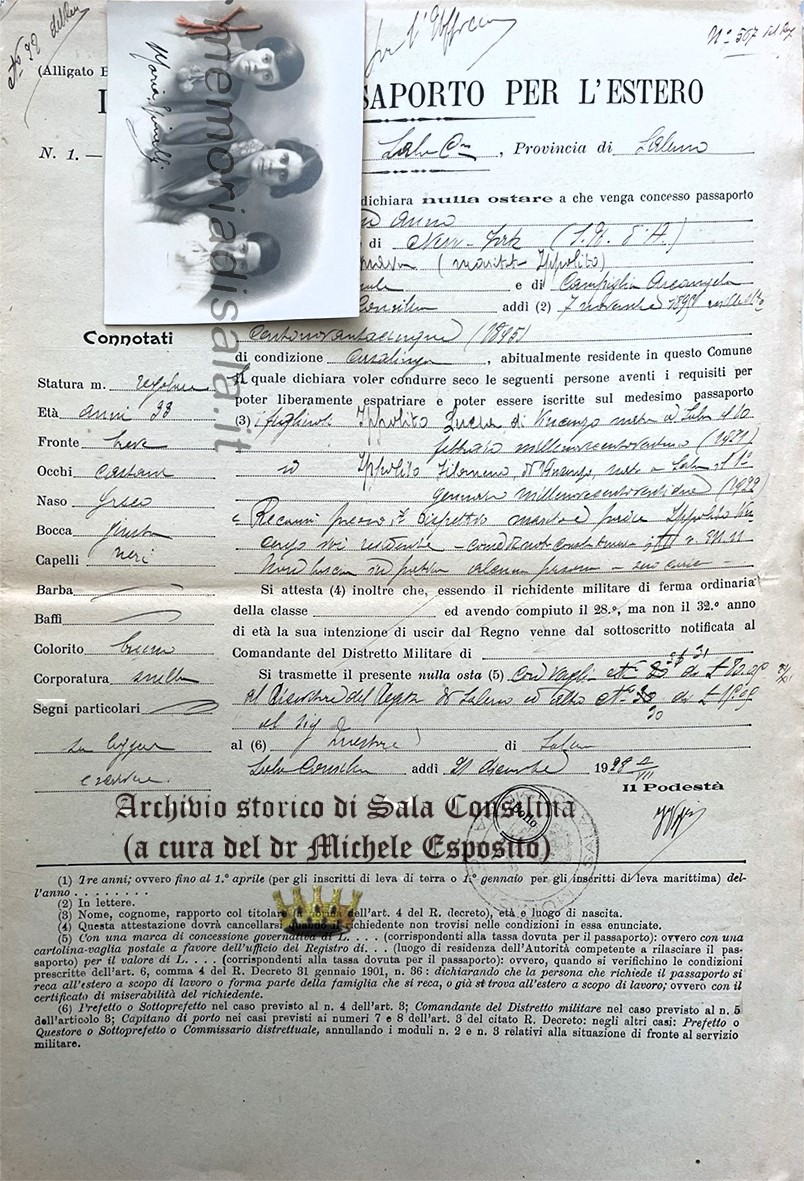 No 98
per l'
No 507
(Alligato B
SAPORTO PER L'ESTERO
Maria Spinelli
www.memoriadisala.it
N. 1. — Sala Con , Provincia di Salerno
dichiara nulla ostare a che venga concesso passaporto
anno
di New-York (S. U. d'A.)
(maritata Ippolito)
e di Campiglia Arcangela
Consilina addì (2) 7 novembre 1895
centonovantacinque (1895)
Connotati
di condizione Casalinga , abitualmente residente in questo Comune
Il quale dichiara voler condurre seco le seguenti persone aventi i requisiti per
poter liberamente espatriare e poter essere iscritte sul medesimo passaporto
Statura m. regolare
Età anni 33
Fronte
Occhi castani
Naso greco
Bocca giusta
Capelli neri
Barba
Baffi
Colorito bruno
Corporatura snella
Segni particolari
sa leggere
e scrivere.
(3) i figli Ippolito Lucia di Vincenzo nata a Sala
febbraio millenovecentoventuno (1921)
id Ippolito Filomena, di Vincenzo, nata a Sala il 1°
gennaio millenovecentoventidue (1922)
e Recarsi presso il rispettivo marito e padre Ippolito
ivi residente
Si attesta (4) inoltre che, essendo il richidente militare di ferma ordinaria
della classe ed avendo compiuto il 28.º, ma non il 32.º anno
di età la sua intenzione di uscir dal Regno venne dal sottoscritto notificata al
Comandante del Distretto Militare di
Si trasmette il presente nulla osta (5) con vaglia No
al Ricevitore del Registro di Salerno ed altro No 20
al sig
al (6) Questore di Salerno
Sala Consilina addì 21 dicembre 1928
VII
Il Podestà
Archivio storico di Sala Consilina
(a cura del dr Michele Esposito)
(1) Tre anni; ovvero fino al 1.º aprile (per gli inscritti di leva di terra o 1.º gennaio per gli inscritti di leva marittima) del-
l'anno . . . . . . . .
(2) In lettere.
(3) Nome, cognome, rapporto col titolare (a norma dell'art. 4 del R. decreto), età e luogo di nascita.
(4) Questa attestazione dovrà cancellarsi quando il richiedente non trovisi nelle condizioni in essa enunciate.
(5) Con una marca di concessione governativa di L. . . . (corrispondenti alla tassa dovuta per il passaporto): ovvero con una
cartolina-vaglia postale a favore dell'ufficio del Registro di. . . (luogo di residenza dell'Autorità competente a rilasciare il pas-
saporto) per il valore di L. . . . (corrispondenti alla tassa dovuta per il passaporto): ovvero, quando si verifichino le condizioni
prescritte dell'art. 6, comma 4 del R. Decreto 31 gennaio 1901, n. 36 : dichiarando che la persona che richiede il passaporto si
reca all'estero a scopo di lavoro o forma parte della famiglia che si reca, o già si trova all'estero a scopo di lavoro; ovvero con il
certificato di miserabilità del richiedente.
(6) Prefetto o Sottoprefetto nel caso previsto al n. 4 dell'art. 3; Comandante del Distretto militare nel caso previsto al n. 5
dell'articolo 3; Capitano di porto nei casi previsti ai numeri 7 e 8 dell'art. 3 del citato R. Decreto: negli altri casi: Prefetto o
Questore o Sottoprefetto o Commissario distrettuale, annullando i moduli n. 2 e n. 3 relativi alla situazione di fronte al servizio
militare.